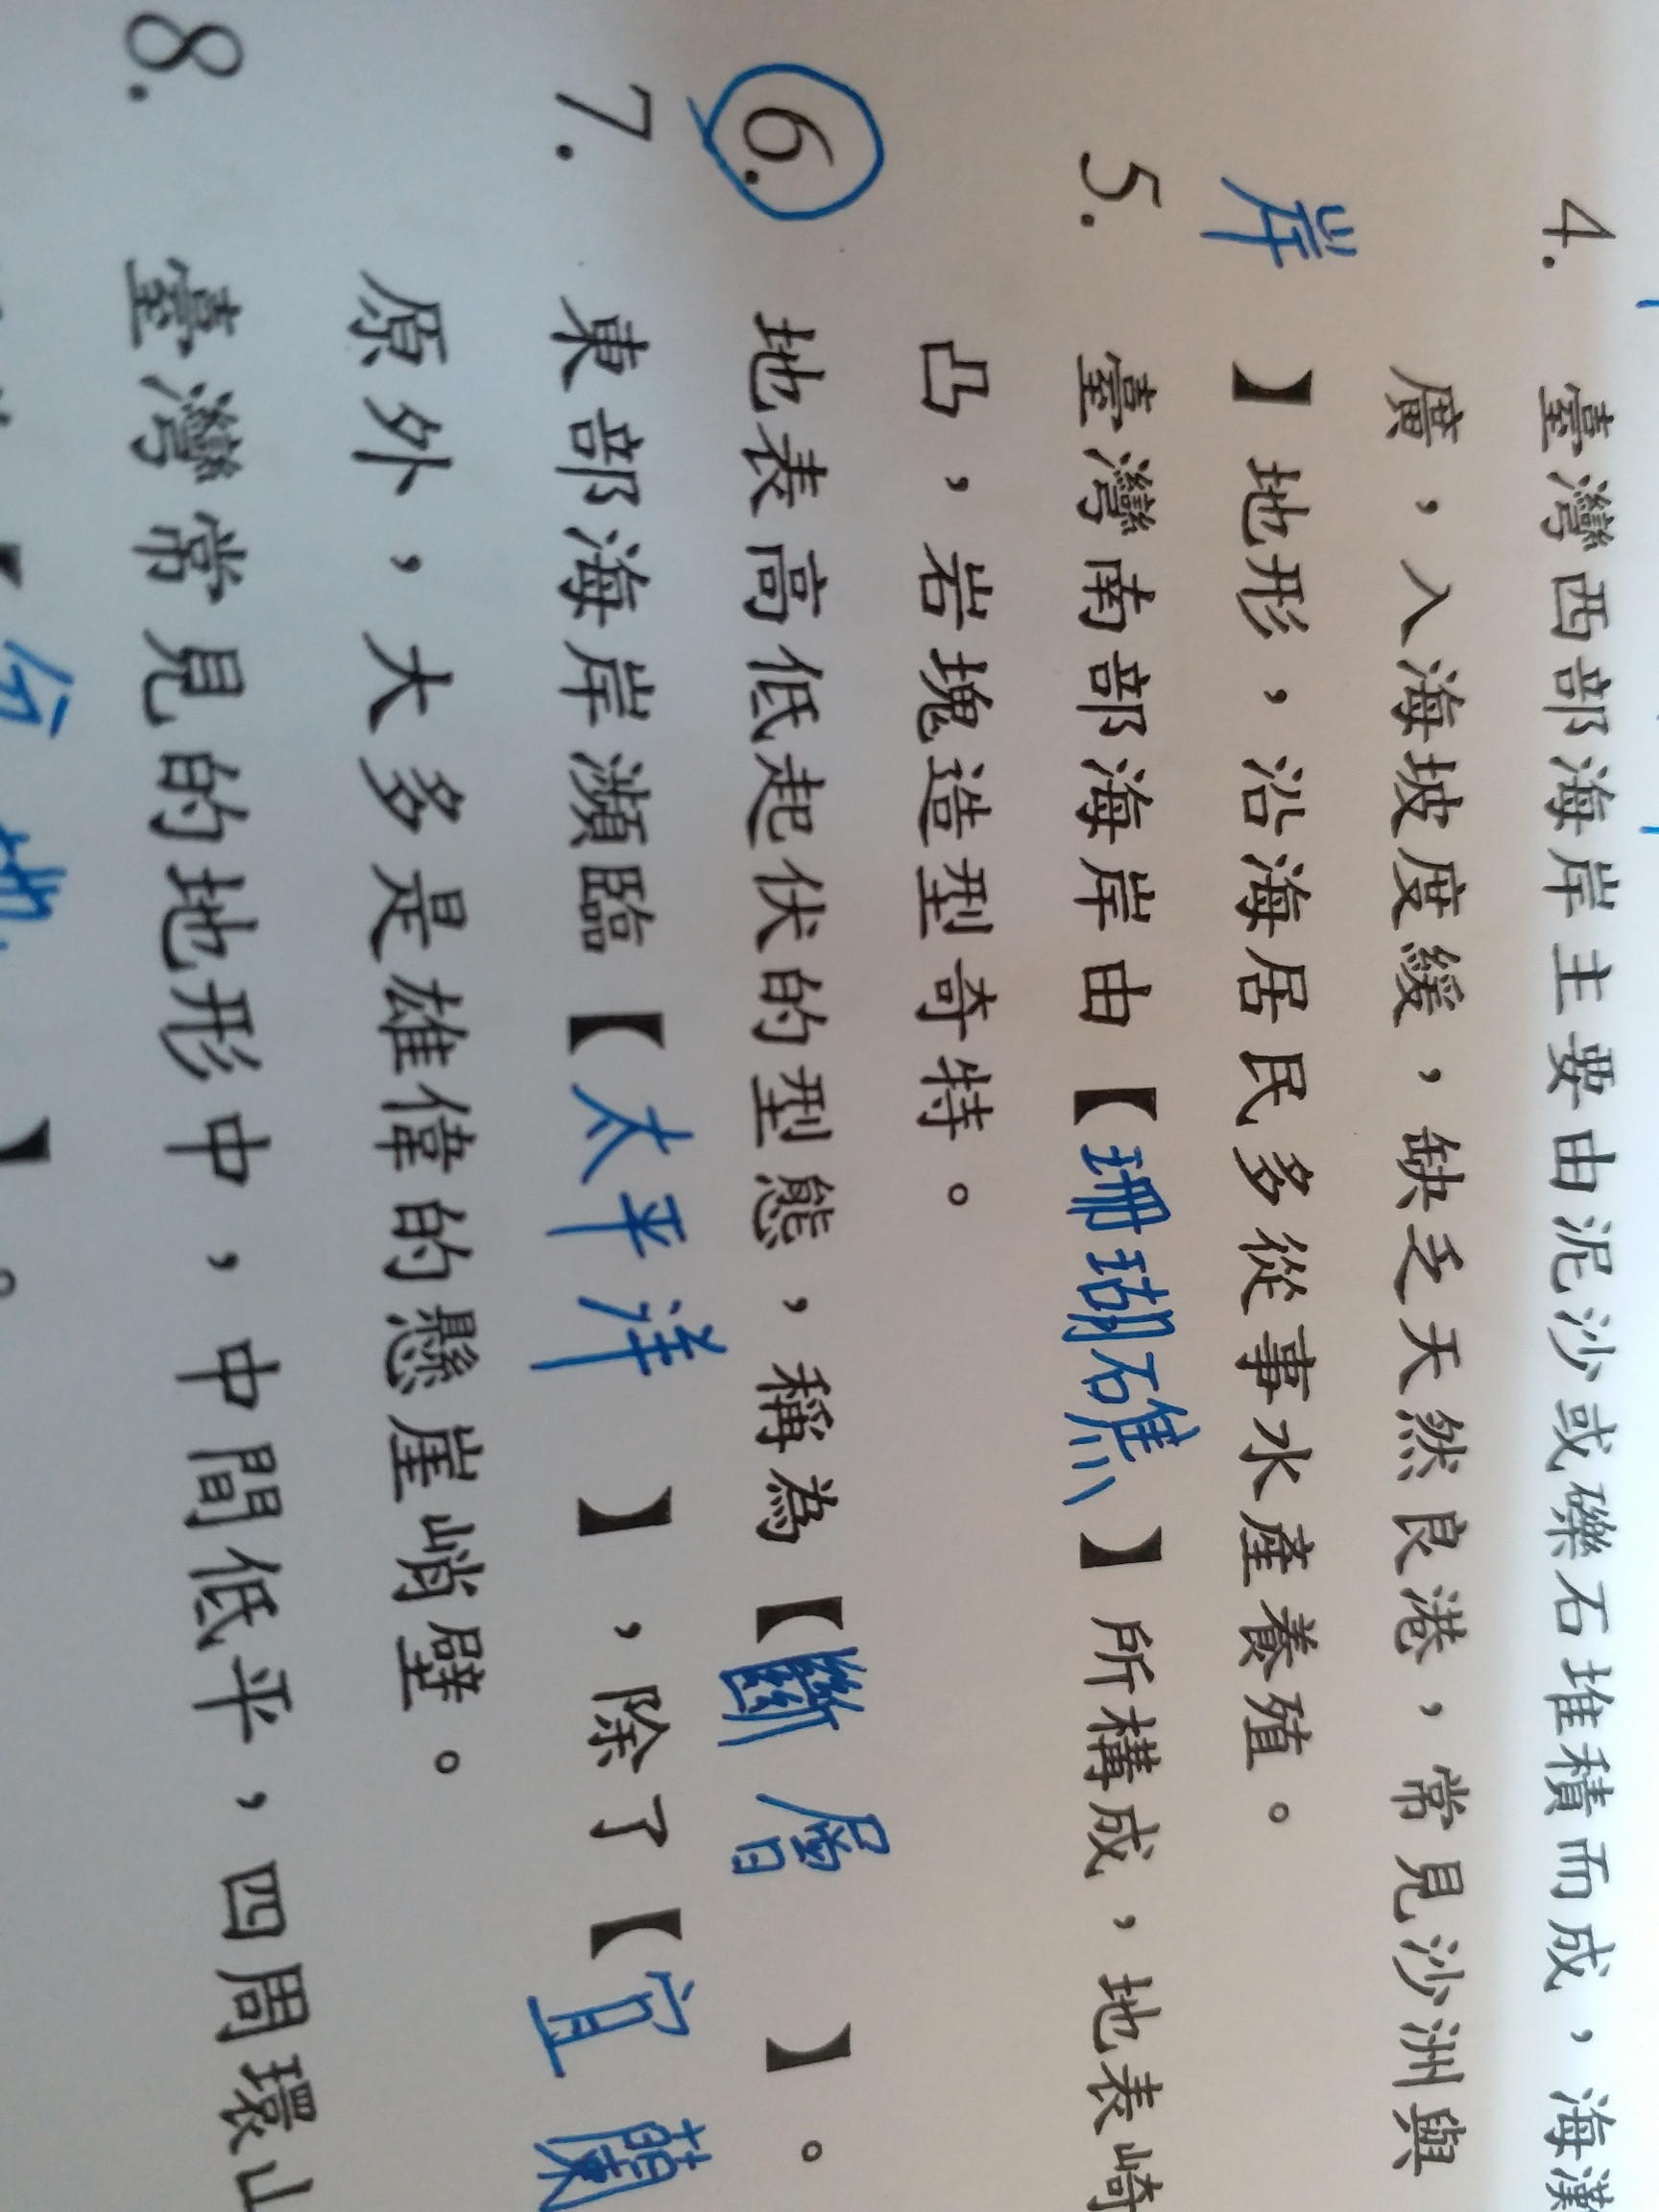 4. 臺灣西部海岸主要由泥沙或礫石堆積而成，海
廣，入海坡度緩，缺乏天然良港，常見沙洲與
岸】地形，沿海居民多從事水產養殖。
5. 臺灣南部海岸由【珊瑚礁】所構成，地表崎
凸，岩塊造型奇特。
6. 地表高低起伏的型態，稱為【斷層】。
7. 東部海岸瀕臨【太平洋】，除了【宜蘭
原外，大多是雄偉的懸崖峭壁。
8. 臺灣常見的地形中，中間低平，四周環山
【盆地】。